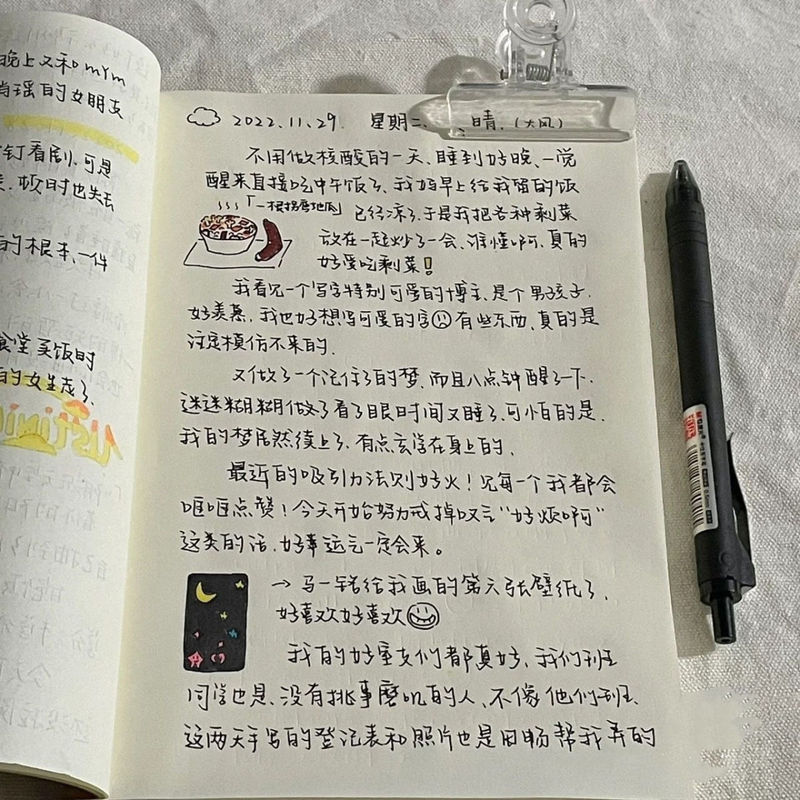 晚上又和mym
的女朋友
钉看剧.可是
顿时也失去
的根本、一件
食堂买饭时
的女生走了.
2022.11.29. 星期二. 晴.(大风)
不用做核酸的一天、睡到好晚、一觉
醒来直接吃中午饭了、我妈早上给我留的饭
「一根拐唇地肉」已经凉了于是我把各种剩菜
放在一起炒了一会、谁懂啊、真的
好爱吃剩菜!
我看见一个写字特别可爱的博主、是个男孩子.
好羡慕、我也好想写可爱的字 有些东西、真的是
注定模仿不来的.
又做了一个记住了的梦、而且八点钟醒了一下、
迷迷糊糊做了看了眼时间又睡了、可怕的是、
我的梦居然续上了、有点玄学在身上的、
最近的吸引力法则好火!见每一个我都会
哐哐点赞!今天开始努力戒掉叹气"好烦啊"
这类的话、好事运气一定会来。
→ 马一铭给我画的第六张壁纸了、
好喜欢好喜欢
我的好室友们都真好、我们班
同学也是、没有挑事磨叽的人、不像他们班、
这两天手写的登记表和照片也是田畅帮我弄的